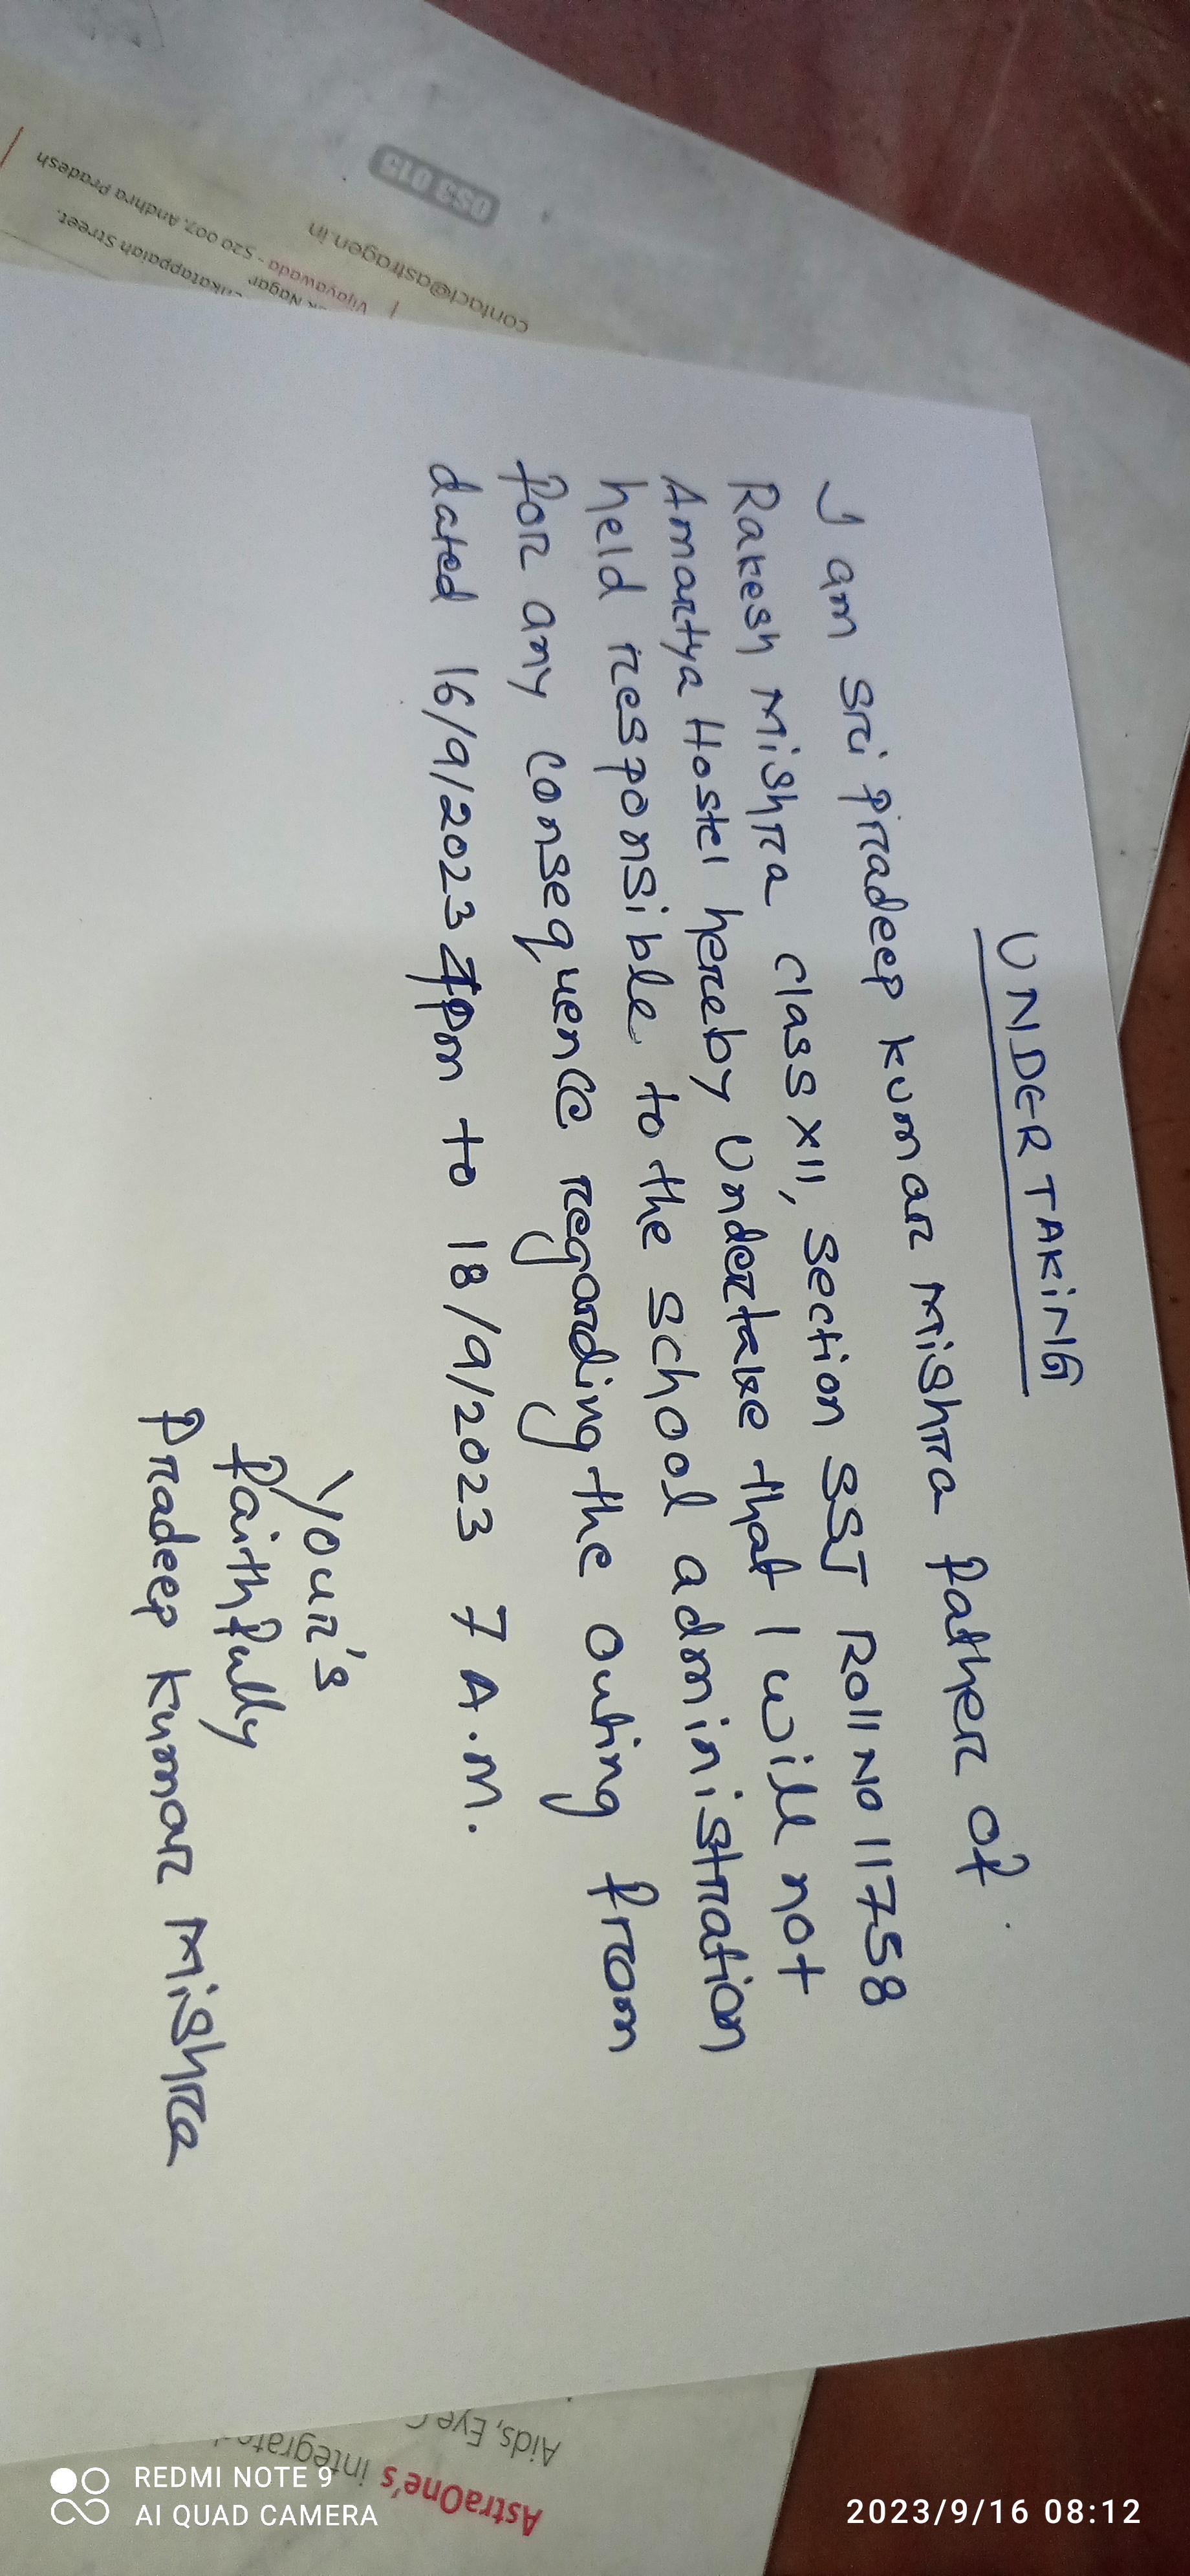 UNDERTAKING
I am Sri Pradeep kumar Mishra father of
Rakesh Mishra class XII, Section SST Roll No 11758
Amartya Hostel hereby Undertake that I will not
held responsible to the school administration
for any consequence regarding the outing from
dated 16/9/2023 4pm to 18/9/2023 7 A.M.
Your's
faithfully
Pradeep Kumar Mishra
OS3 015
contact@astragen.in
Vijayawada - 520 007. Andhra Pradesh
Nagar
katappaiah Street,
AstraOne's integrat
Aids, Eye
REDMI NOTE 9
AI QUAD CAMERA
2023/9/16 08:12